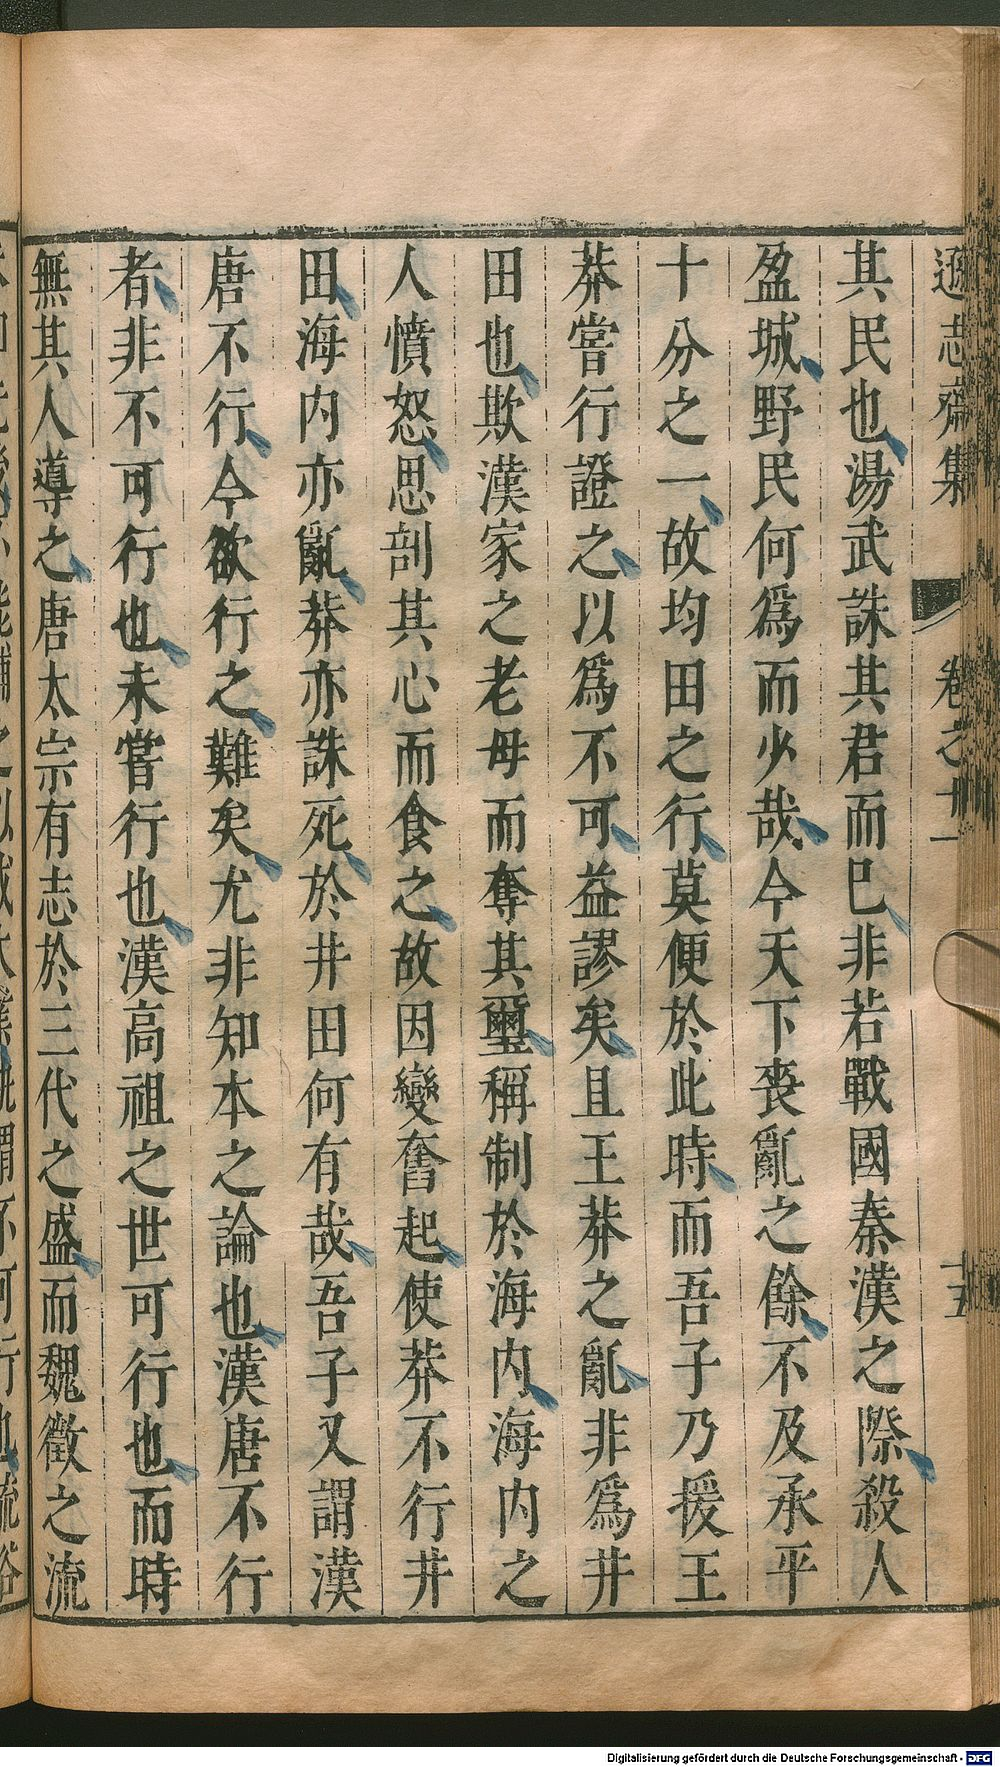 遜志齋集
卷之十一
十五
其民也湯武誅其君而巳非若戰國秦漢之際殺人
盈城野民何爲而少哉今天下喪亂之餘不及承平
十分之一故均田之行莫便於此時而吾子乃援王
莽嘗行證之以爲不可益謬矣且王莽之亂非爲井
田也欺漢家之老母而奪其璽稱制於海内海内之
人憤怒思剖其心而食之故因變奮起使莽不行井
田海内亦亂莽亦誅死於井田何有哉吾子又謂漢
唐不行今欲行之難矣尤非知本之論也漢唐不行
者非不可行也未嘗行也漢高祖之世可行也而時
無其人導之唐太宗有志於三代之盛而魏徵之流
Digitalisierung gefördert durch die Deutsche Forschungsgemeinschaft - DFG